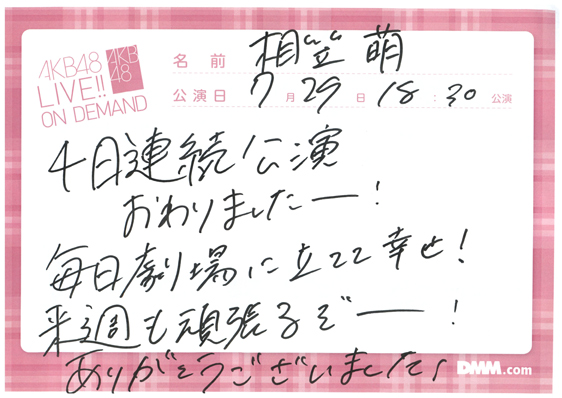 AKB48
LIVE!!
ON DEMAND
AKB
48
名前 相笠 萌
公演日 7月29日 18:30公演
4日連続公演
おわりましたー!
毎日劇場に立てて幸せ!
来週も頑張るぞー!
ありがとうございました。
DMM.com